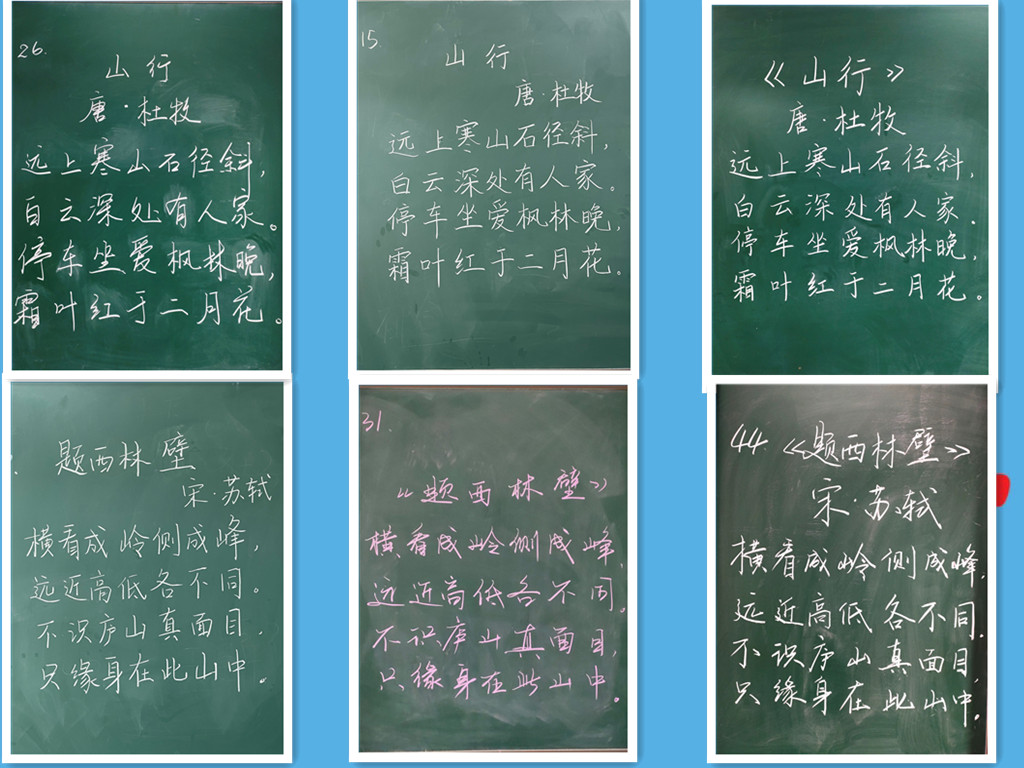 26.
山行
唐·杜牧
远上寒山石径斜,
白云深处有人家。
停车坐爱枫林晚,
霜叶红于二月花。
15.
山行
唐·杜牧
远上寒山石径斜,
白云深处有人家。
停车坐爱枫林晚,
霜叶红于二月花。
《山行》
唐·杜牧
远上寒山石径斜,
白云深处有人家.
停车坐爱枫林晚,
霜叶红于二月花。
题西林壁
宋·苏轼
横看成岭侧成峰,
远近高低各不同。
不识庐山真面目,
只缘身在此山中。
31.
《题西林壁》
横看成岭侧成峰,
远近高低各不同。
不识庐山真面目,
只缘身在此山中。
44.《题西林壁》
宋·苏轼
横看成岭侧成峰,
远近高低各不同,
不识庐山真面目,
只缘身在此山中。